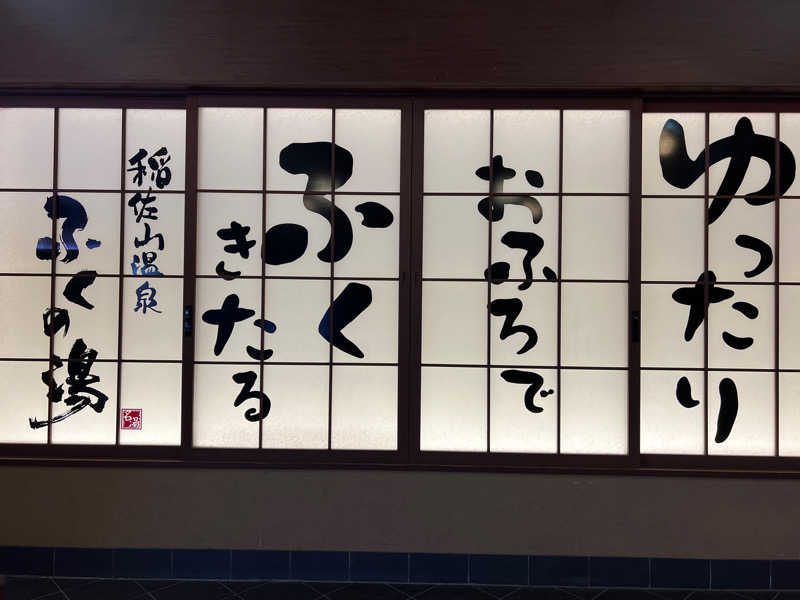 ゆったり
おふろで
ふく
きたる
稲佐山温泉
ふくの湯
名湯